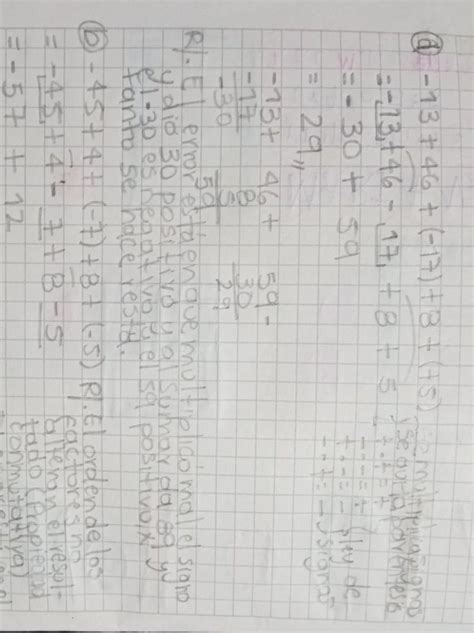 a) -13+46+(-17)+8+(+5)
= -13+46-17+8+5
= -30+59
= 29,,
-13+ 46+ 59-
-17 8 30
-30 5 29
59
R/. El error está en que multiplicó mal el signo
y dio 30 positivo y al sumar da 89 y
el -30 es negativo y el 59 positivo, x
tanto se hace resta.
b) -45+4+(-7)+8+(-5) R/. El orden de los
= -45+4-7+8-5 factores no
= -57+12 altera el resul-
tado (Propiedad
conmutativa)
ley de
signos